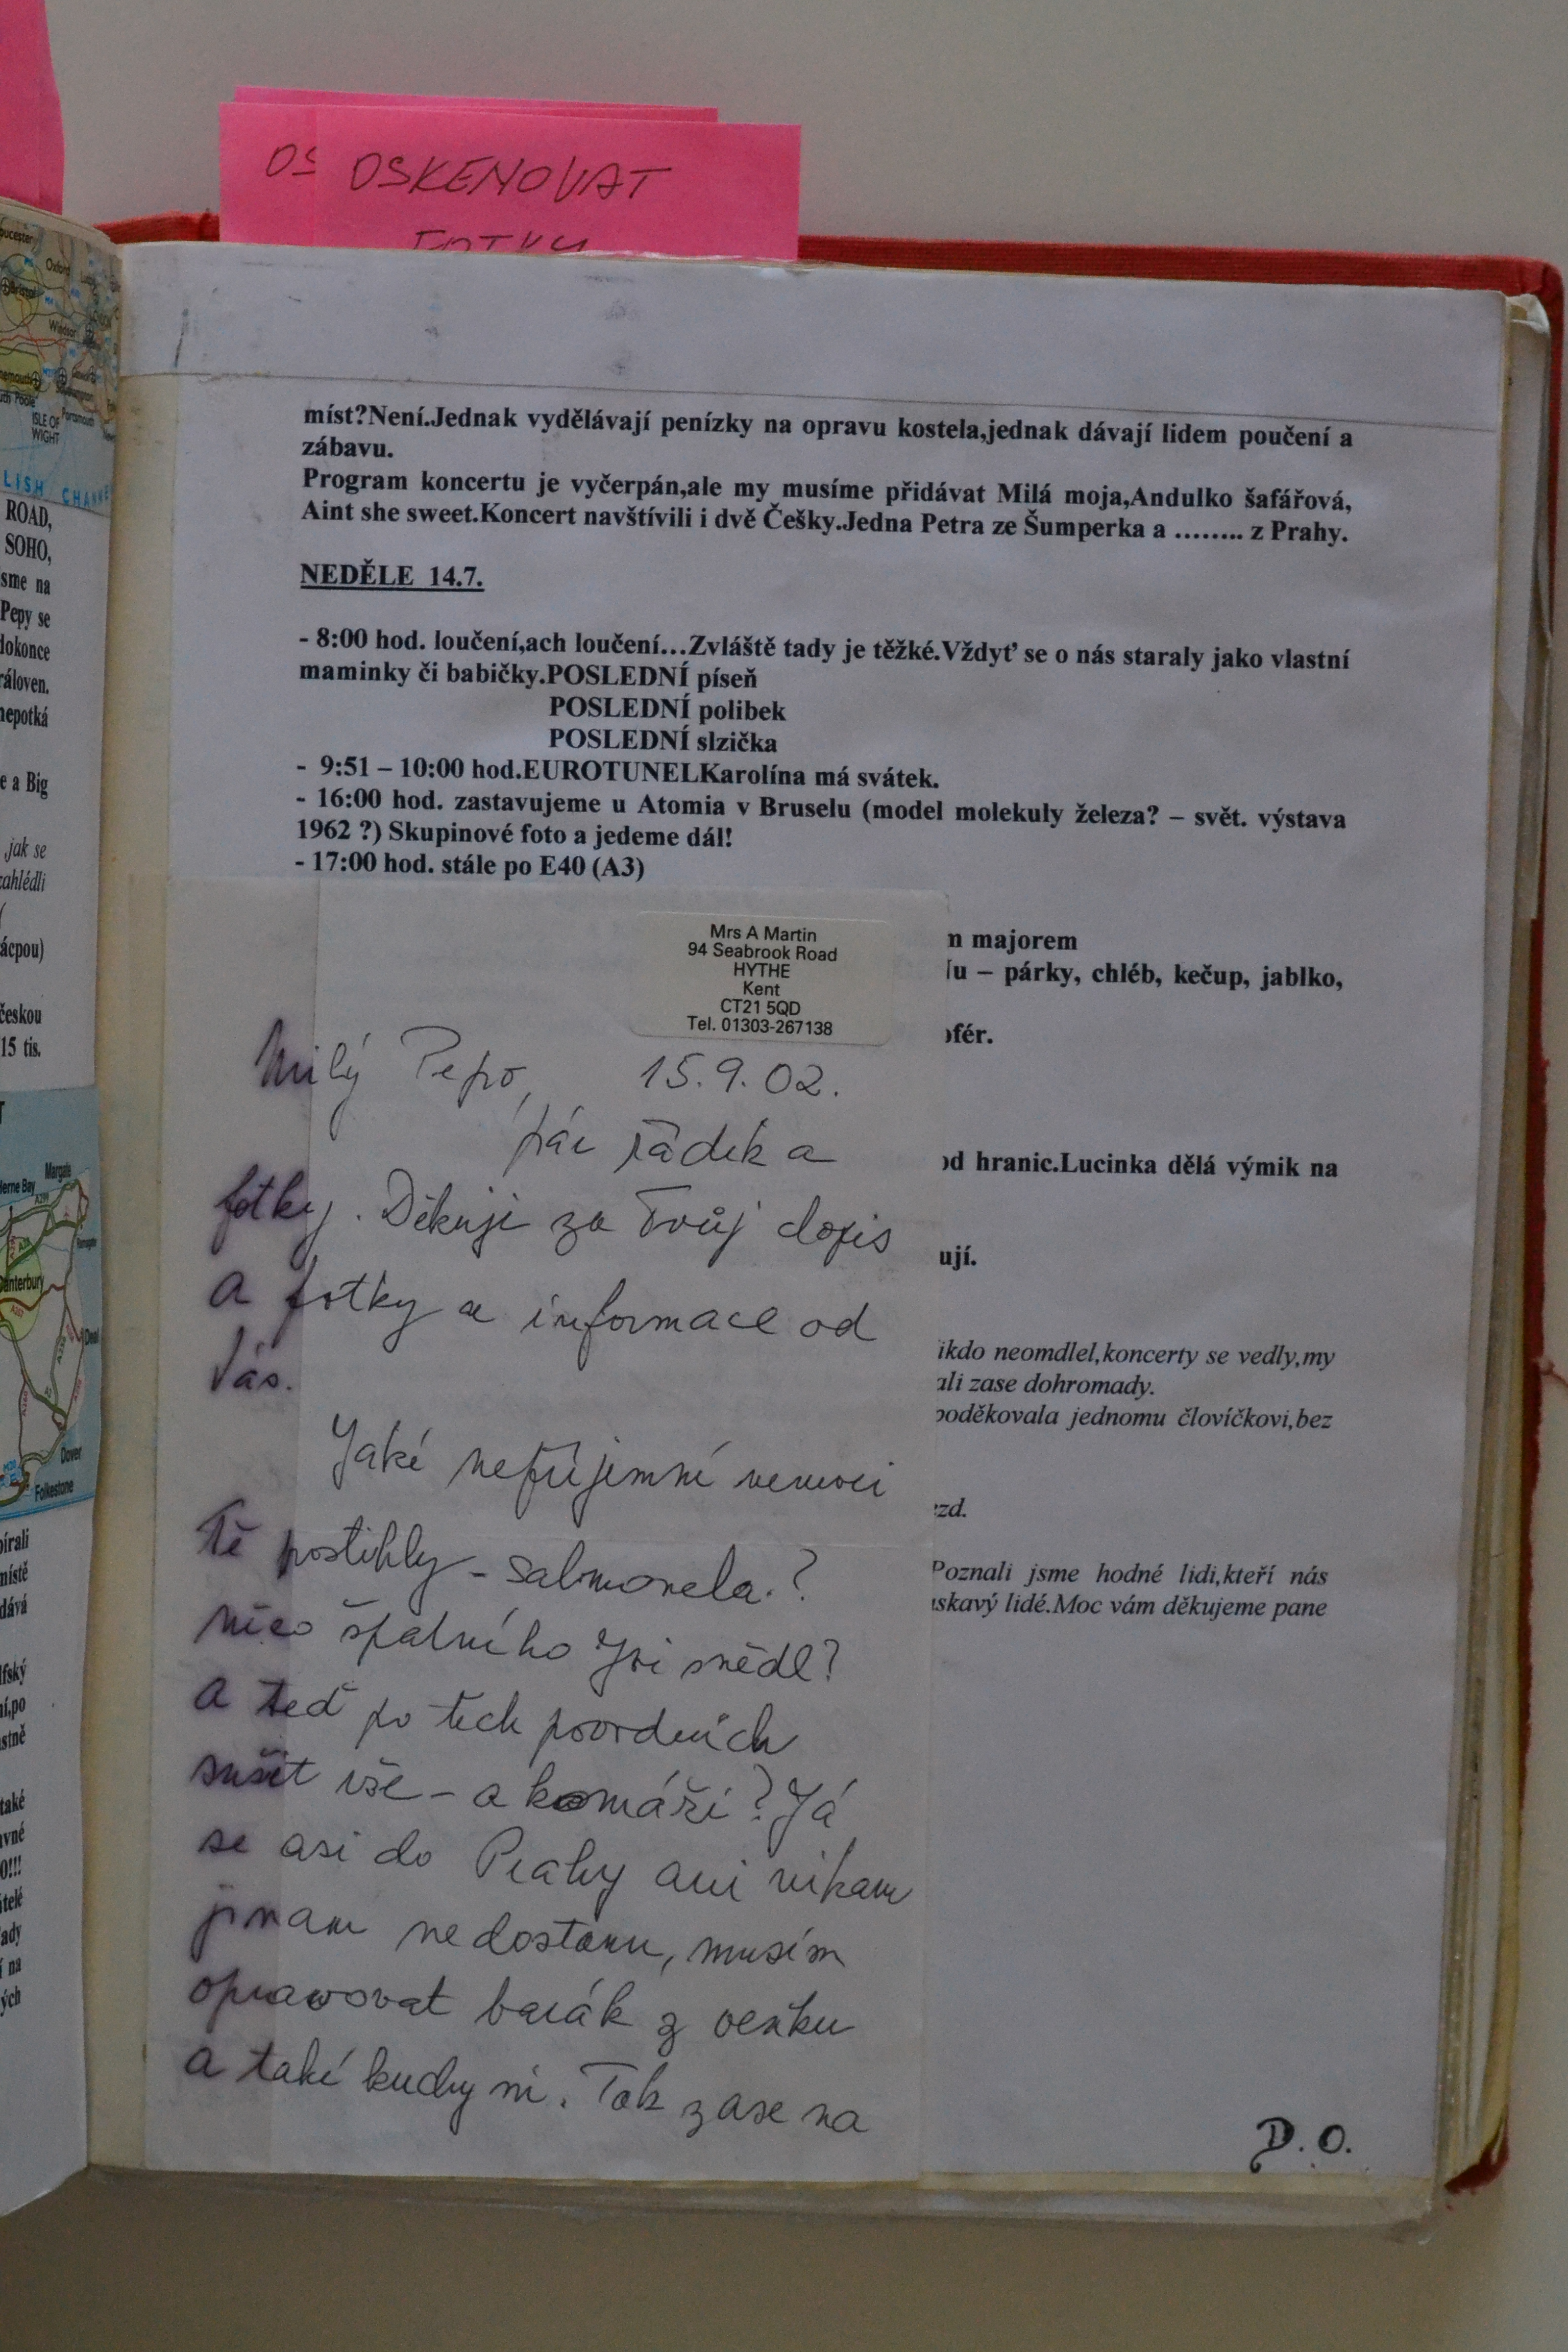 OS OSKENOVAT
FOTKY
oucester
Oxford
Bristol
Windsor
ISLE OF
WIGHT
LISH CHANNE
ROAD,
SOHO,
sme na
Pepy se
dokonce
ráloven.
nepotká
e a Big
jak se
zahlédli
(
ácpou)
českou
15 tis.
T
Margate
erne Bay
anterbury
Deal
Dover
Folkestone
pírali
místě
dává
ní,po
stně
také
vné
0!!!
átelé
ady
í na
ých
míst?Není.Jednak vydělávají penízky na opravu kostela,jednak dávají lidem poučení a
zábavu.
Program koncertu je vyčerpán,ale my musíme přidávat Milá moja,Andulko šafářová,
Aint she sweet.Koncert navštívili i dvě Češky.Jedna Petra ze Šumperka a …….. z Prahy.
NEDĚLE 14.7.
- 8:00 hod. loučení,ach loučení…Zvláště tady je těžké.Vždyť se o nás staraly jako vlastní
maminky či babičky.POSLEDNÍ píseň
POSLEDNÍ polibek
POSLEDNÍ slzička
- 9:51 – 10:00 hod.EUROTUNELKarolína má svátek.
- 16:00 hod. zastavujeme u Atomia v Bruselu (model molekuly železa? – svět. výstava
1962 ?) Skupinové foto a jedeme dál!
- 17:00 hod. stále po E40 (A3)
Mrs A Martin
94 Seabrook Road
HYTHE
Kent
CT21 5QD
Tel. 01303-267138
Milý Pepo, 15.9.02.
pár řádek a
fotky. Děkuji za Tvůj dopis
a fotky a informace od
Vás.
Jaké nepříjemné nemoci
Tě postihly - salmonela.?
něco špatního Jsi snědl?
a teď po tech povodních
sušit vše - a komáři? Já
se asi do Prahy ani nikam
jinam nedostanu, musím
opravovat barák z venku
a také kuchyni. Tak zase na
m majorem
u – párky, chléb, kečup, jablko,
ofér.
od hranic.Lucinka dělá výmik na
ují.
ikdo neomdlel,koncerty se vedly,my
ali zase dohromady.
poděkovala jednomu človíčkovi,bez
zd.
Poznali jsme hodné lidi,kteří nás
askavý lidé.Moc vám děkujeme pane
D.O.